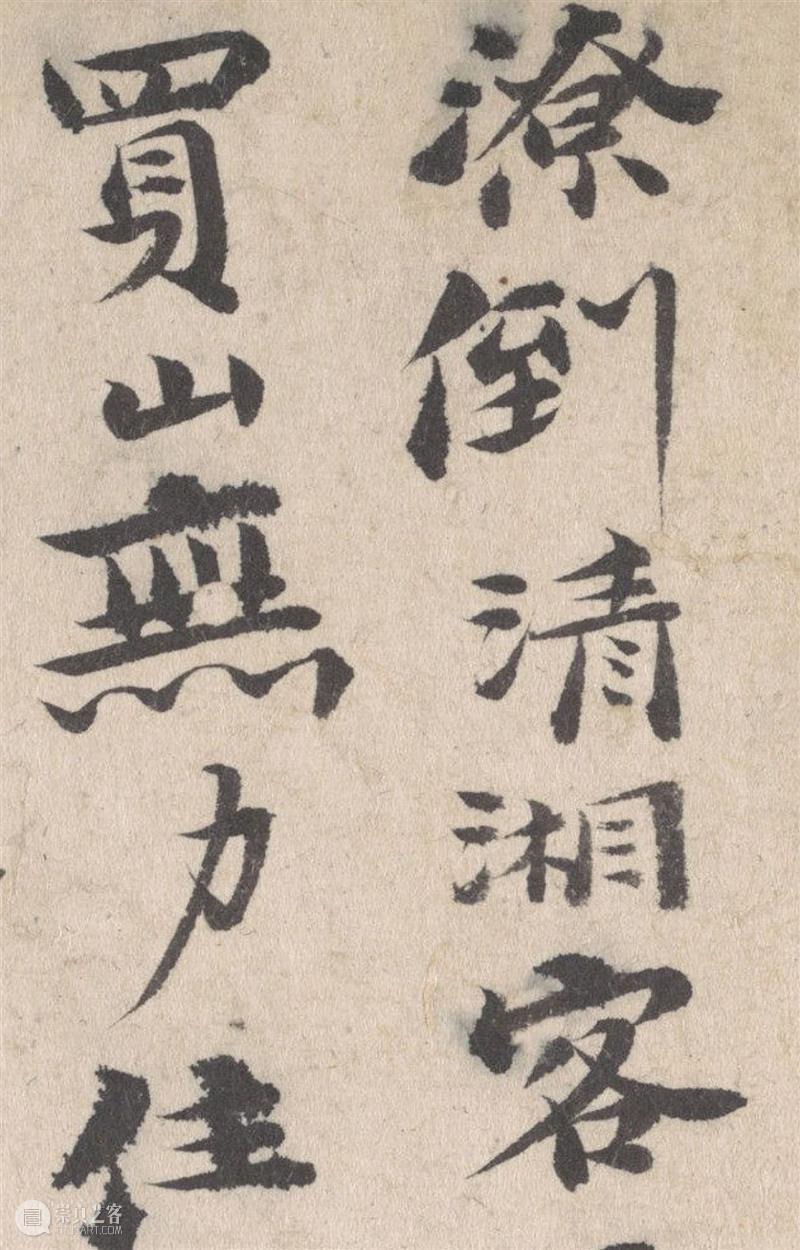 潦倒清湘客
買山無力住
崇真艺客